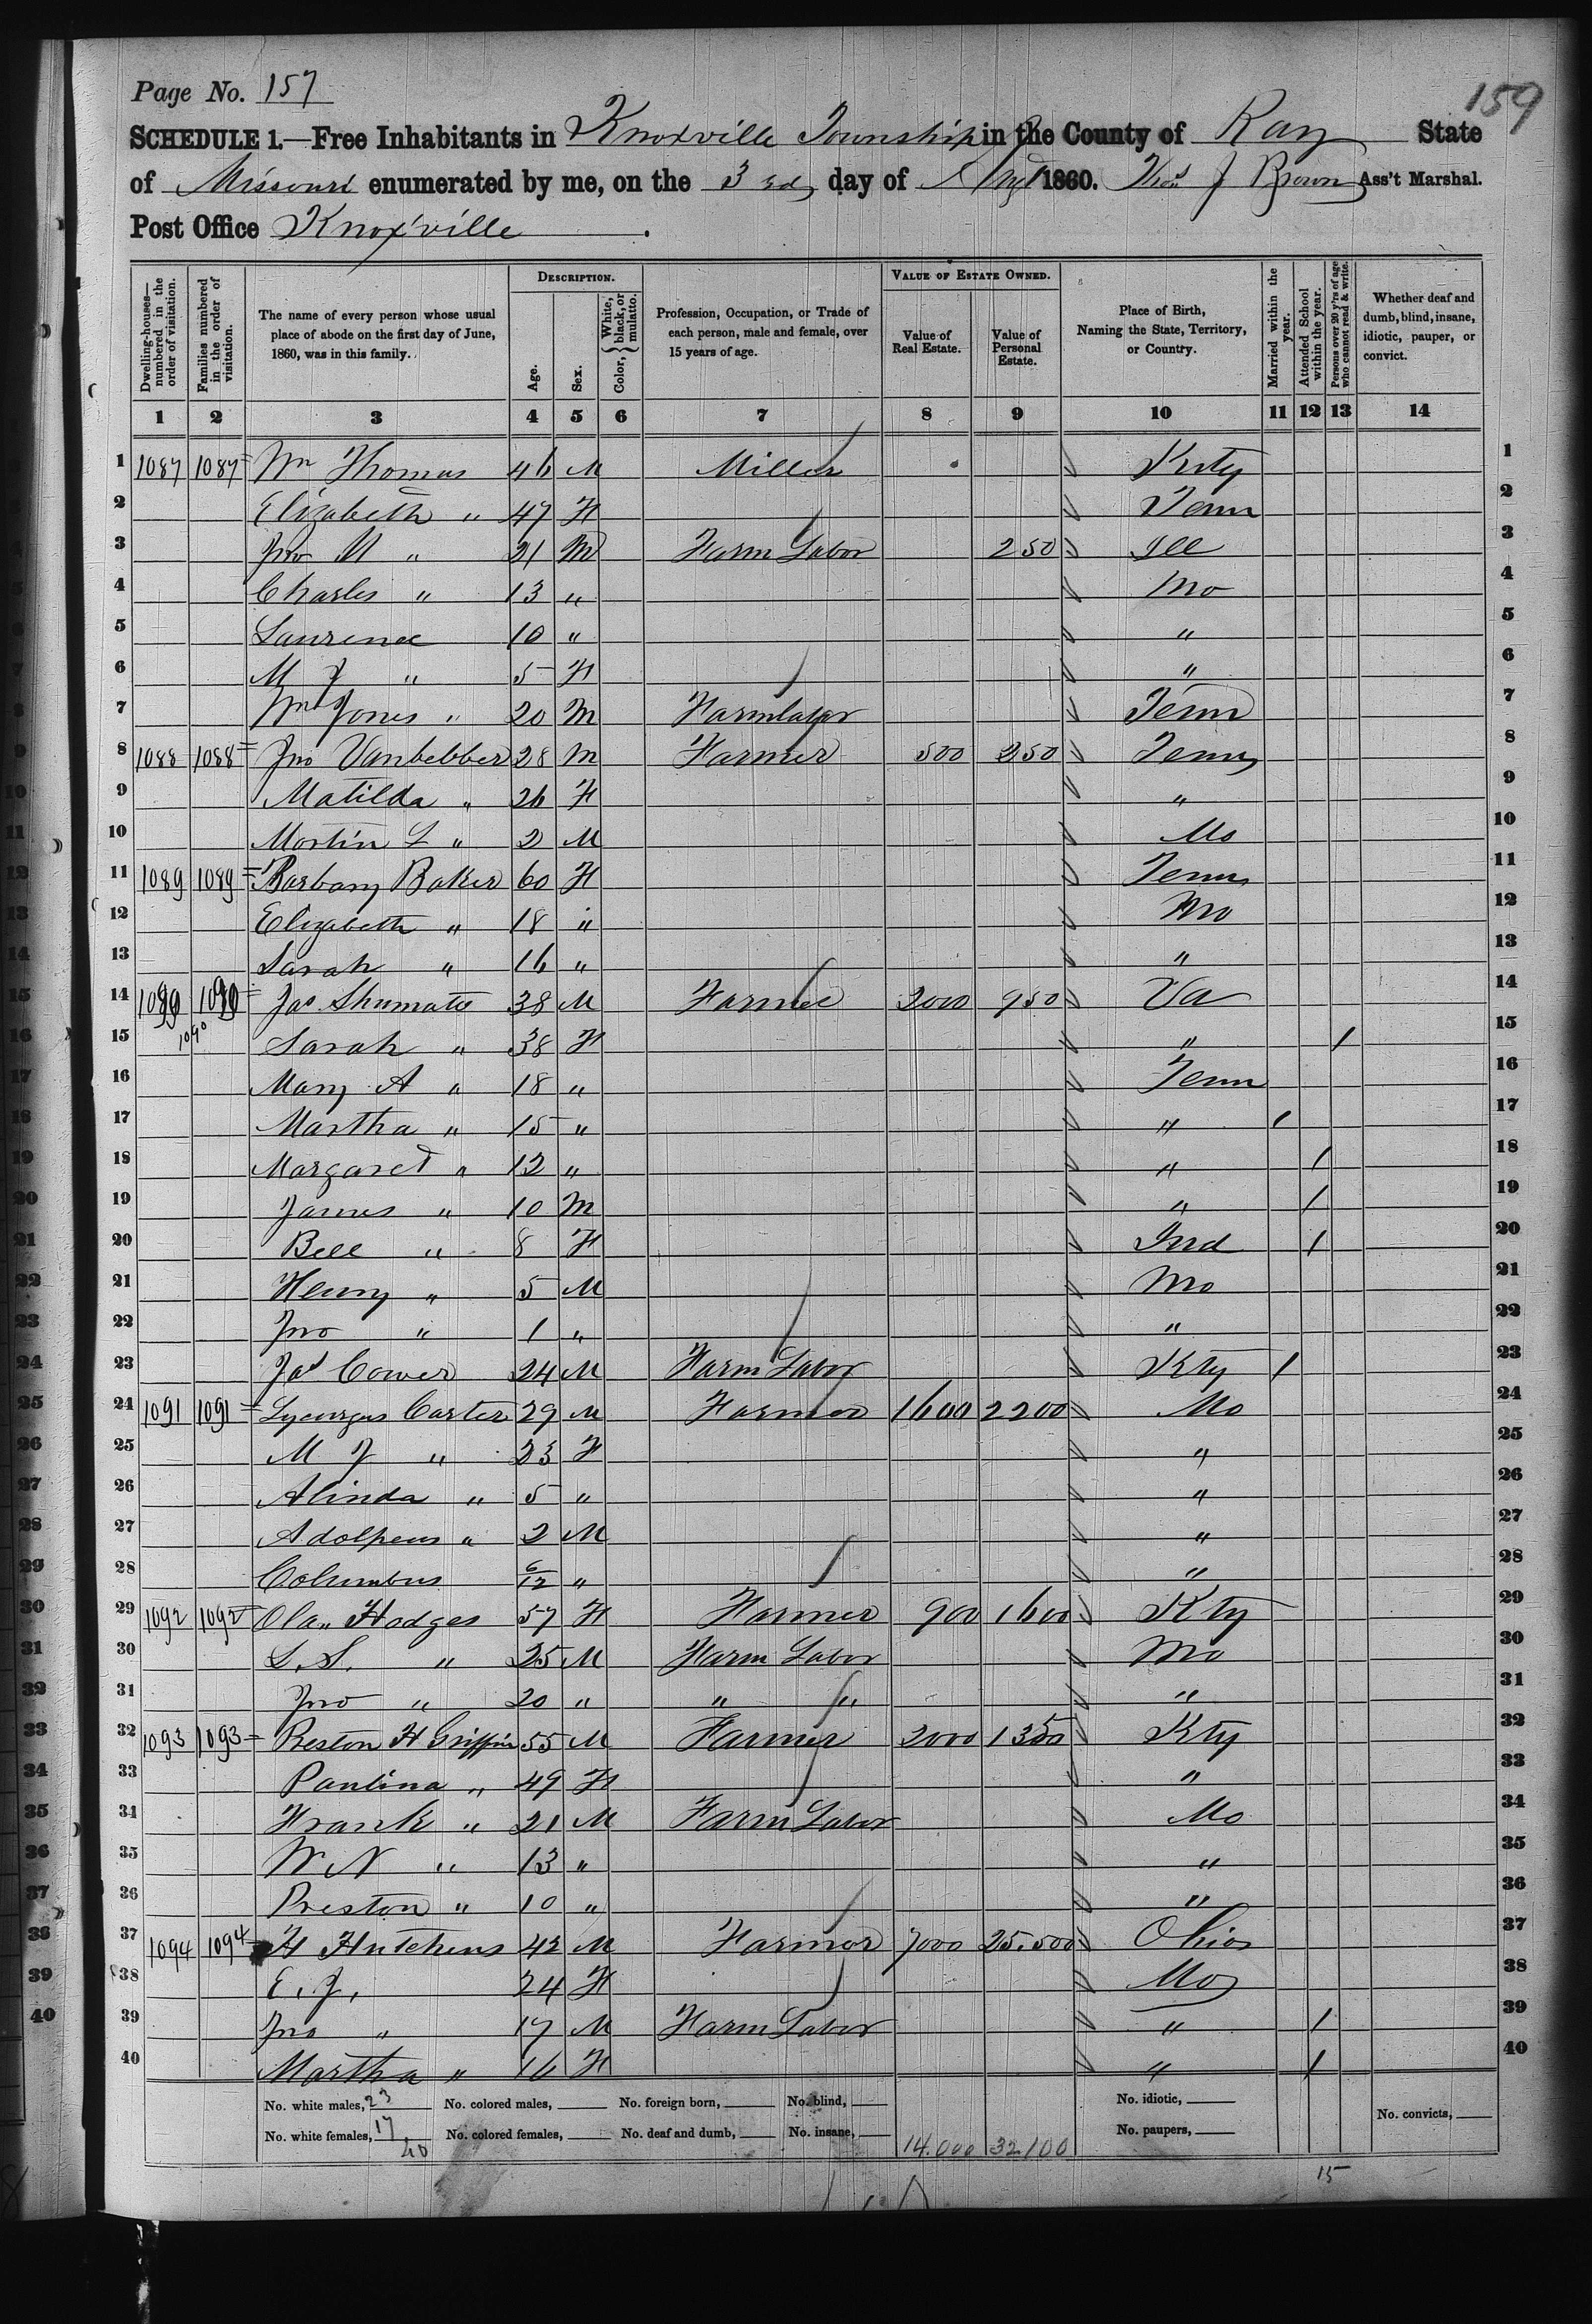 Page No. 157
159
SCHEDULE 1.—Free Inhabitants in Knoxville Township in the County of Ray State
of Missouri enumerated by me, on the 3rd day of Augt 1860. Thos J Brown Ass't Marshal.
Post Office Knoxville.
Dwelling-houses—numbered in the order of visitation. Families numbered in the order of visitation. The name of every person whose usual place of abode on the first day of June, 1860, was in this family. DESCRIPTION. Age. Sex. Color, { White, black, or mulatto. Profession, Occupation, or Trade of each person, male and female, over 15 years of age. VALUE OF ESTATE OWNED. Value of Real Estate. Value of Personal Estate. Place of Birth, Naming the State, Territory, or Country. Married within the year. Attended School within the year. Persons over 20 y'rs of age who cannot read & write. Whether deaf and dumb, blind, insane, idiotic, pauper, or convict.
1 2 3 4 5 6 7 8 9 10 11 12 13 14
1 1087 1087 Wm Thomas 46 M Miller Knty 1
2 Elizabeth " 47 F Tenn 2
3 Jno " 21 M Farm Labor 250 Ill 3
4 Charles " 13 " Mo 4
5 Laurence 10 " " 5
6 M J " 5 F " 6
7 Wm Jones " 20 M Farm labor Tenn 7
8 1088 1088 Jno Vanbebber 28 M Farmer 500 250 Tenn 8
9 Matilda " 26 F " 9
10 Mortin L " 2 M Mo 10
11 1089 1089 Barbary Baker 60 F Tenn 11
12 Elizabeth " 18 " Mo 12
13 Sarah " 16 " " 13
14 1090 1090 Jas Shumate 38 M Farmer 2000 950 Va 14
15 1090 Sarah " 38 F " / 15
16 Mary A " 18 " Tenn 16
17 Martha " 15 " " / 17
18 Margaret " 12 " " / 18
19 James " 10 M " / 19
20 Bell " 8 F Ind / 20
21 Henry " 5 M Mo 21
22 Jno " 1 " " 22
23 Jas Cower 24 M Farm Labor Kty / 23
24 1091 1091 Lycurgus Carter 29 M Farmer 1600 2200 Mo 24
25 M J " 23 F " 25
26 Alinda " 5 " " 26
27 Adolpeus " 2 M " 27
28 Columbus 6/12 " " 28
29 1092 1092 Hodges 57 F Farmer 900 1600 Kty 29
30 L. S. " 25 M Farm Labor Mo 30
31 Jno " 20 " " " " 31
32 1093 1093 Preston H Griffin 55 M Farmer 2000 1350 Kty 32
33 Paulina " 49 F " 33
34 Frank " 21 M Farm Labor Mo 34
35 W N " 13 " " 35
36 Preston " 10 " " 36
37 1094 1094 H Hutchins 42 M Farmer 7000 25.500 Ohio 37
38 E. J. 24 F Mo 38
39 Jno " 17 M Farm Labor " / 39
40 Martha " 16 F " / 40
No. white males, 23 No. colored males, No. foreign born, No. blind, No. idiotic,
No. white females, 17 No. colored females, No. deaf and dumb, No. insane, No. paupers, No. convicts,
40 14.000 32100
15